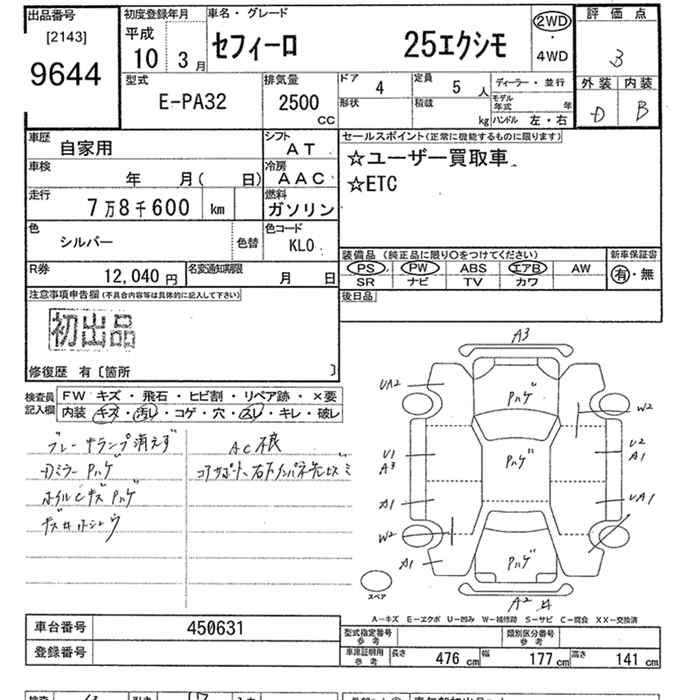 出品番号
[2143]
9644
初度登録年月
平成
10 3月
車名・グレード
セフィーロ 25エクシモ
2WD
・
4WD
評価点
3
外装 内装
D B
型式
E-PA32
排気量
2500
CC
ドア 4
形状
定員 5 人
積載 kg
ディーラー・並行
モデル年式 年
ハンドル 左・右
車歴
自家用
シフト
AT
車検
年 月( 日)
冷房
AAC
走行
7万8千600 km
燃料
ガソリン
色
シルバー
色替
色コード
KL0
R券
12,040 円
名変通知期限
月 日
セールスポイント(正常に機能するものに限ります)
☆ユーザー買取車
☆ETC
装備品 (純正品に限り○をつけてください)
PS PW ABS エアB AW
SR ナビ TV カワ
新車保証書
有・無
後日品
注意事項申告欄(不具合内容等は具体的に記入して下さい)
初出品
修復歴 有〔箇所 〕
検査員
記入欄
FW キズ・飛石・ヒビ割・リペア跡・×要
内装 キズ・汚レ・コゲ・穴・スレ・キレ・破レ
ブレーキランプ消えず
Dミラー Pハゲ
ホイルCキズ Pハゲ
AC不良
A3
UA2
Pハゲ
W2
U1
A3
Pハゲ
U2
A1
A1
UA1
W2
A1
Pハゲ
A2
スペア
A-キズ E-エクボ U-凹み W-補修跡 S-サビ C-腐食 XX-交換済
車台番号
450631
登録番号
型式指定番号
参考
類別区分番号
参考
車庫証明用
参考
長さ 476 cm 幅 177 cm 高さ 141 cm